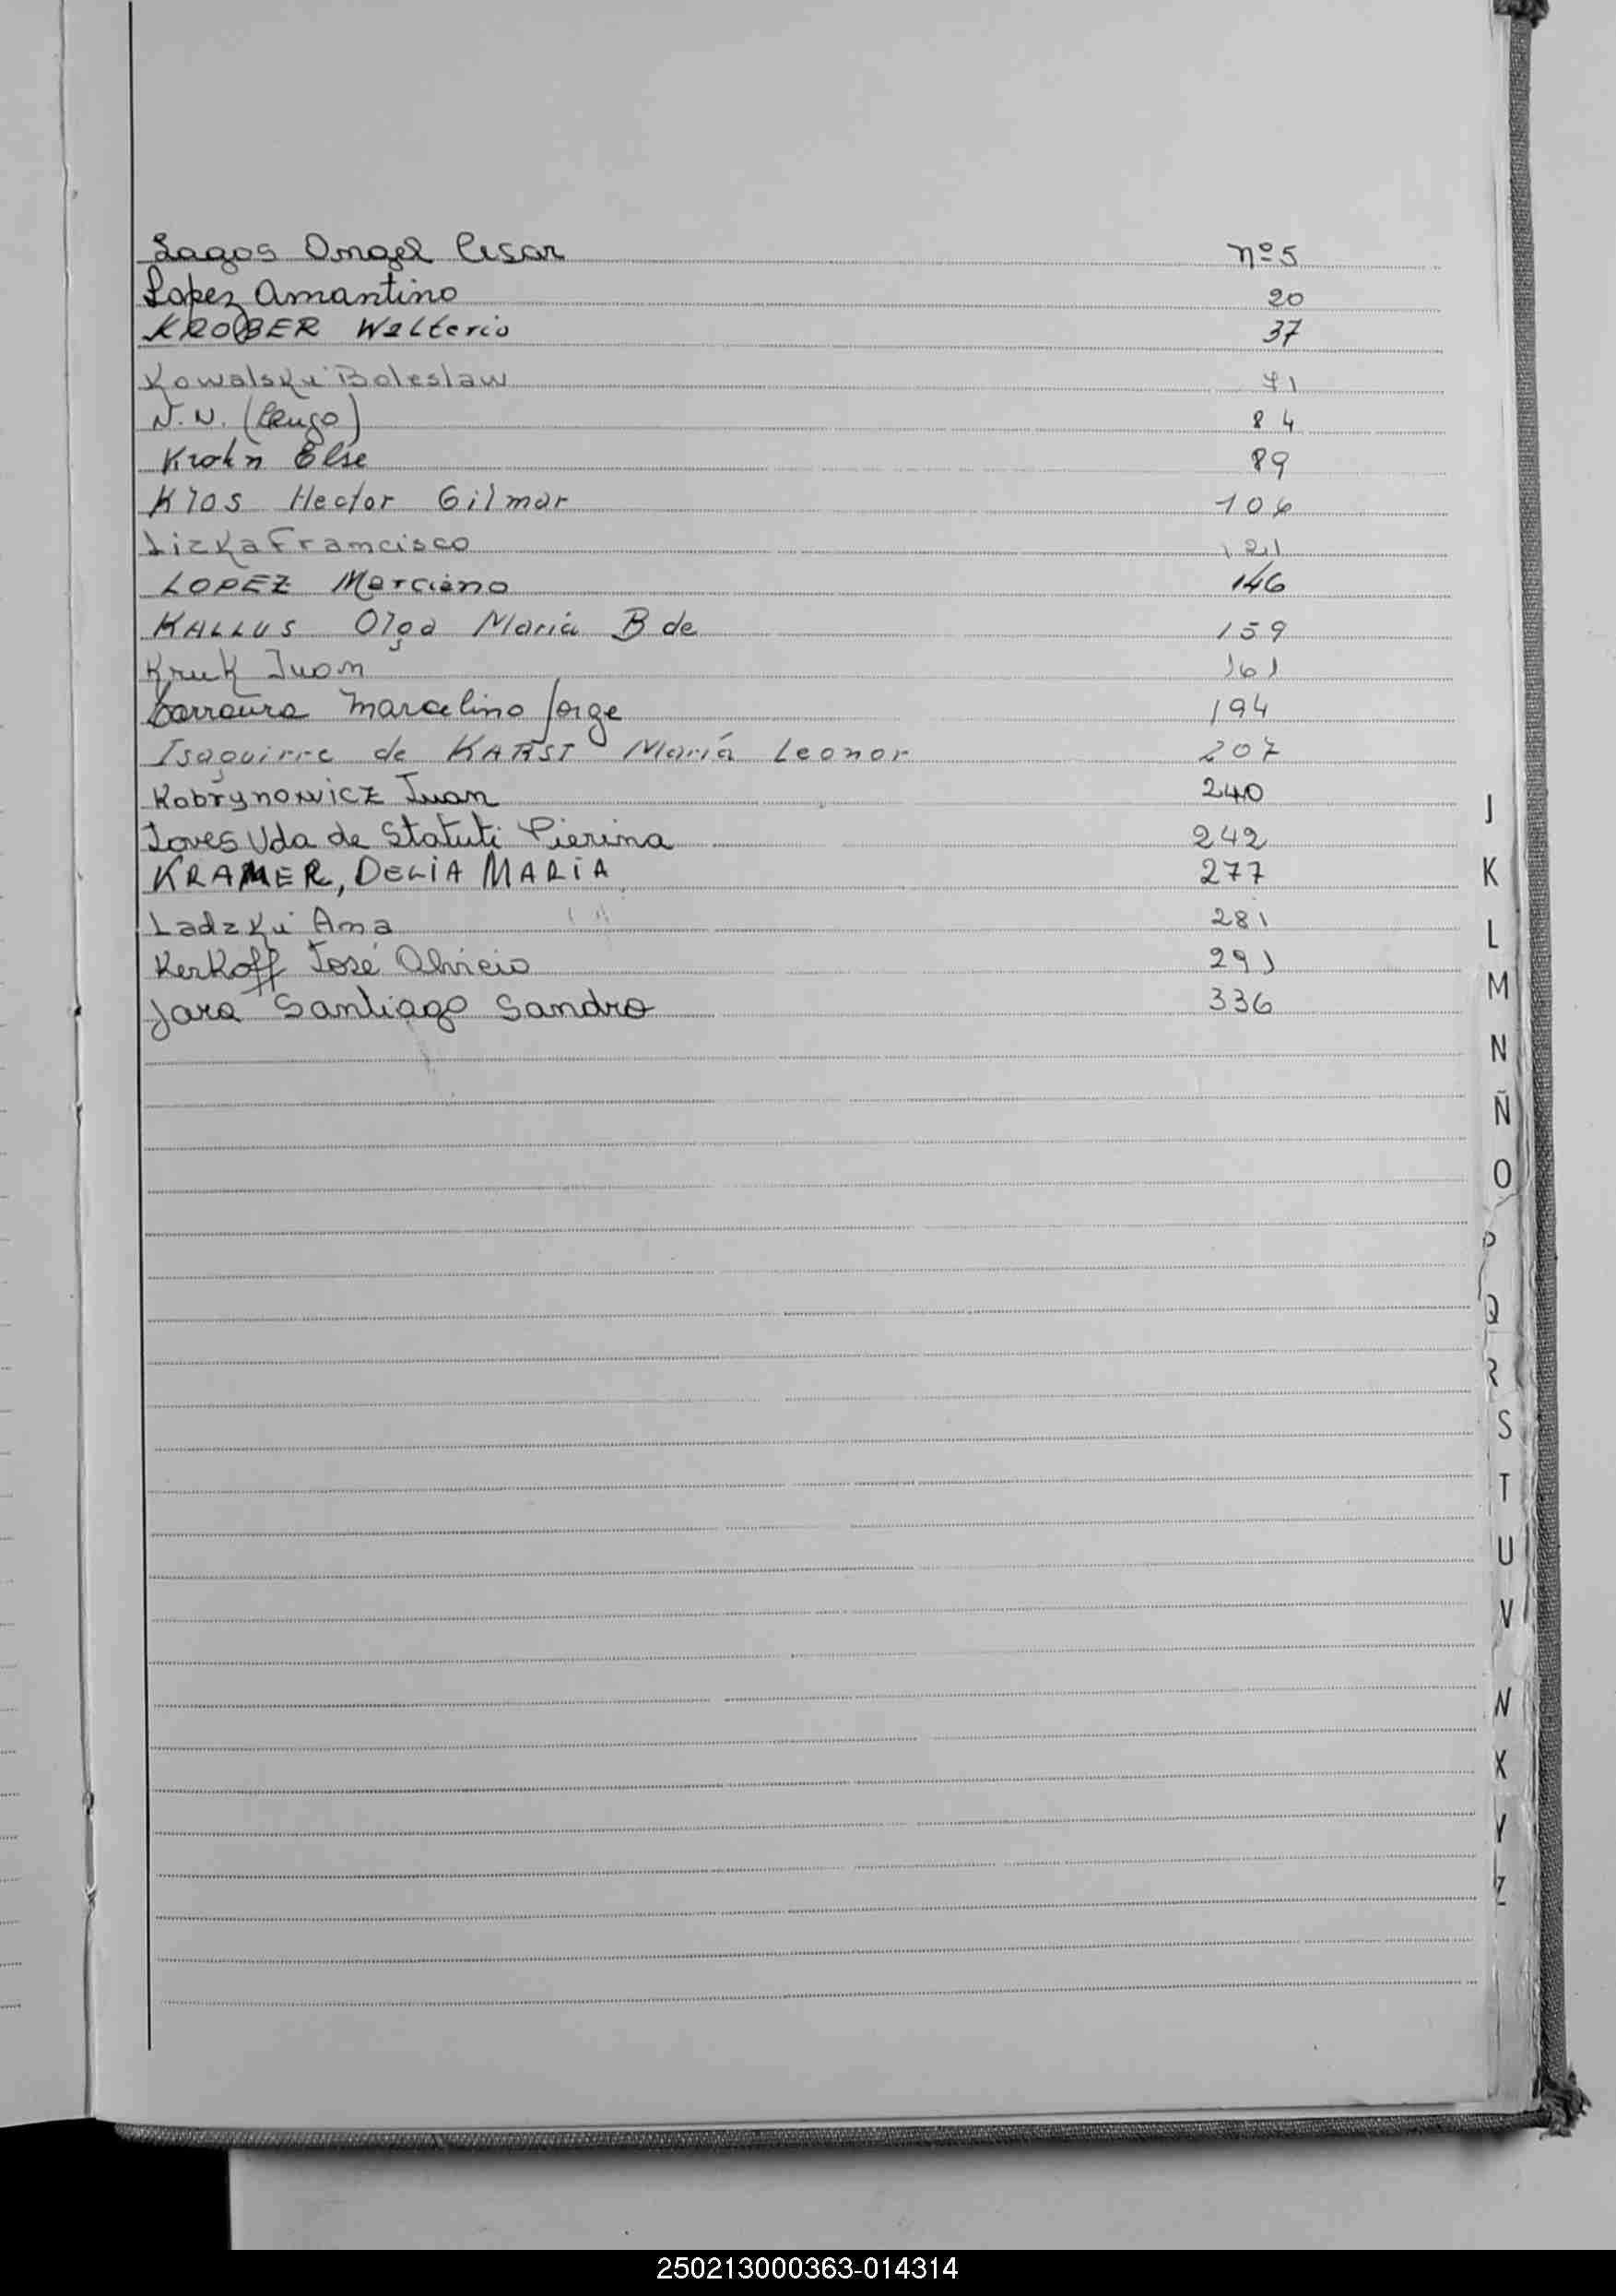 Lagos Angel Cesar nº5
Lopez Amantino 20
KROBER Walterio 37
Kowalski Boleslaw 71
N.N. 84
Krohn Else 89
Klos Hector Gilmar 106
Lizka Francisco 121
LOPEZ Marciano 146
KALLUS Olga María B de 159
Kruk Juan 161
Marcelino Jorge 194
Isaguirre de KARST María Leonor 207
Kobrynowicz Juan 240
Joves Vda de Statuti Pierina 242
KRAMER, DELIA MARIA 277
Ladzki Ana 281
Kerkoff José 291
Jara Santiago Sandro 336
J
K
L
M
N
Ñ
O
P
Q
R
S
T
U
V
X
Y
Z
250213000363-014314